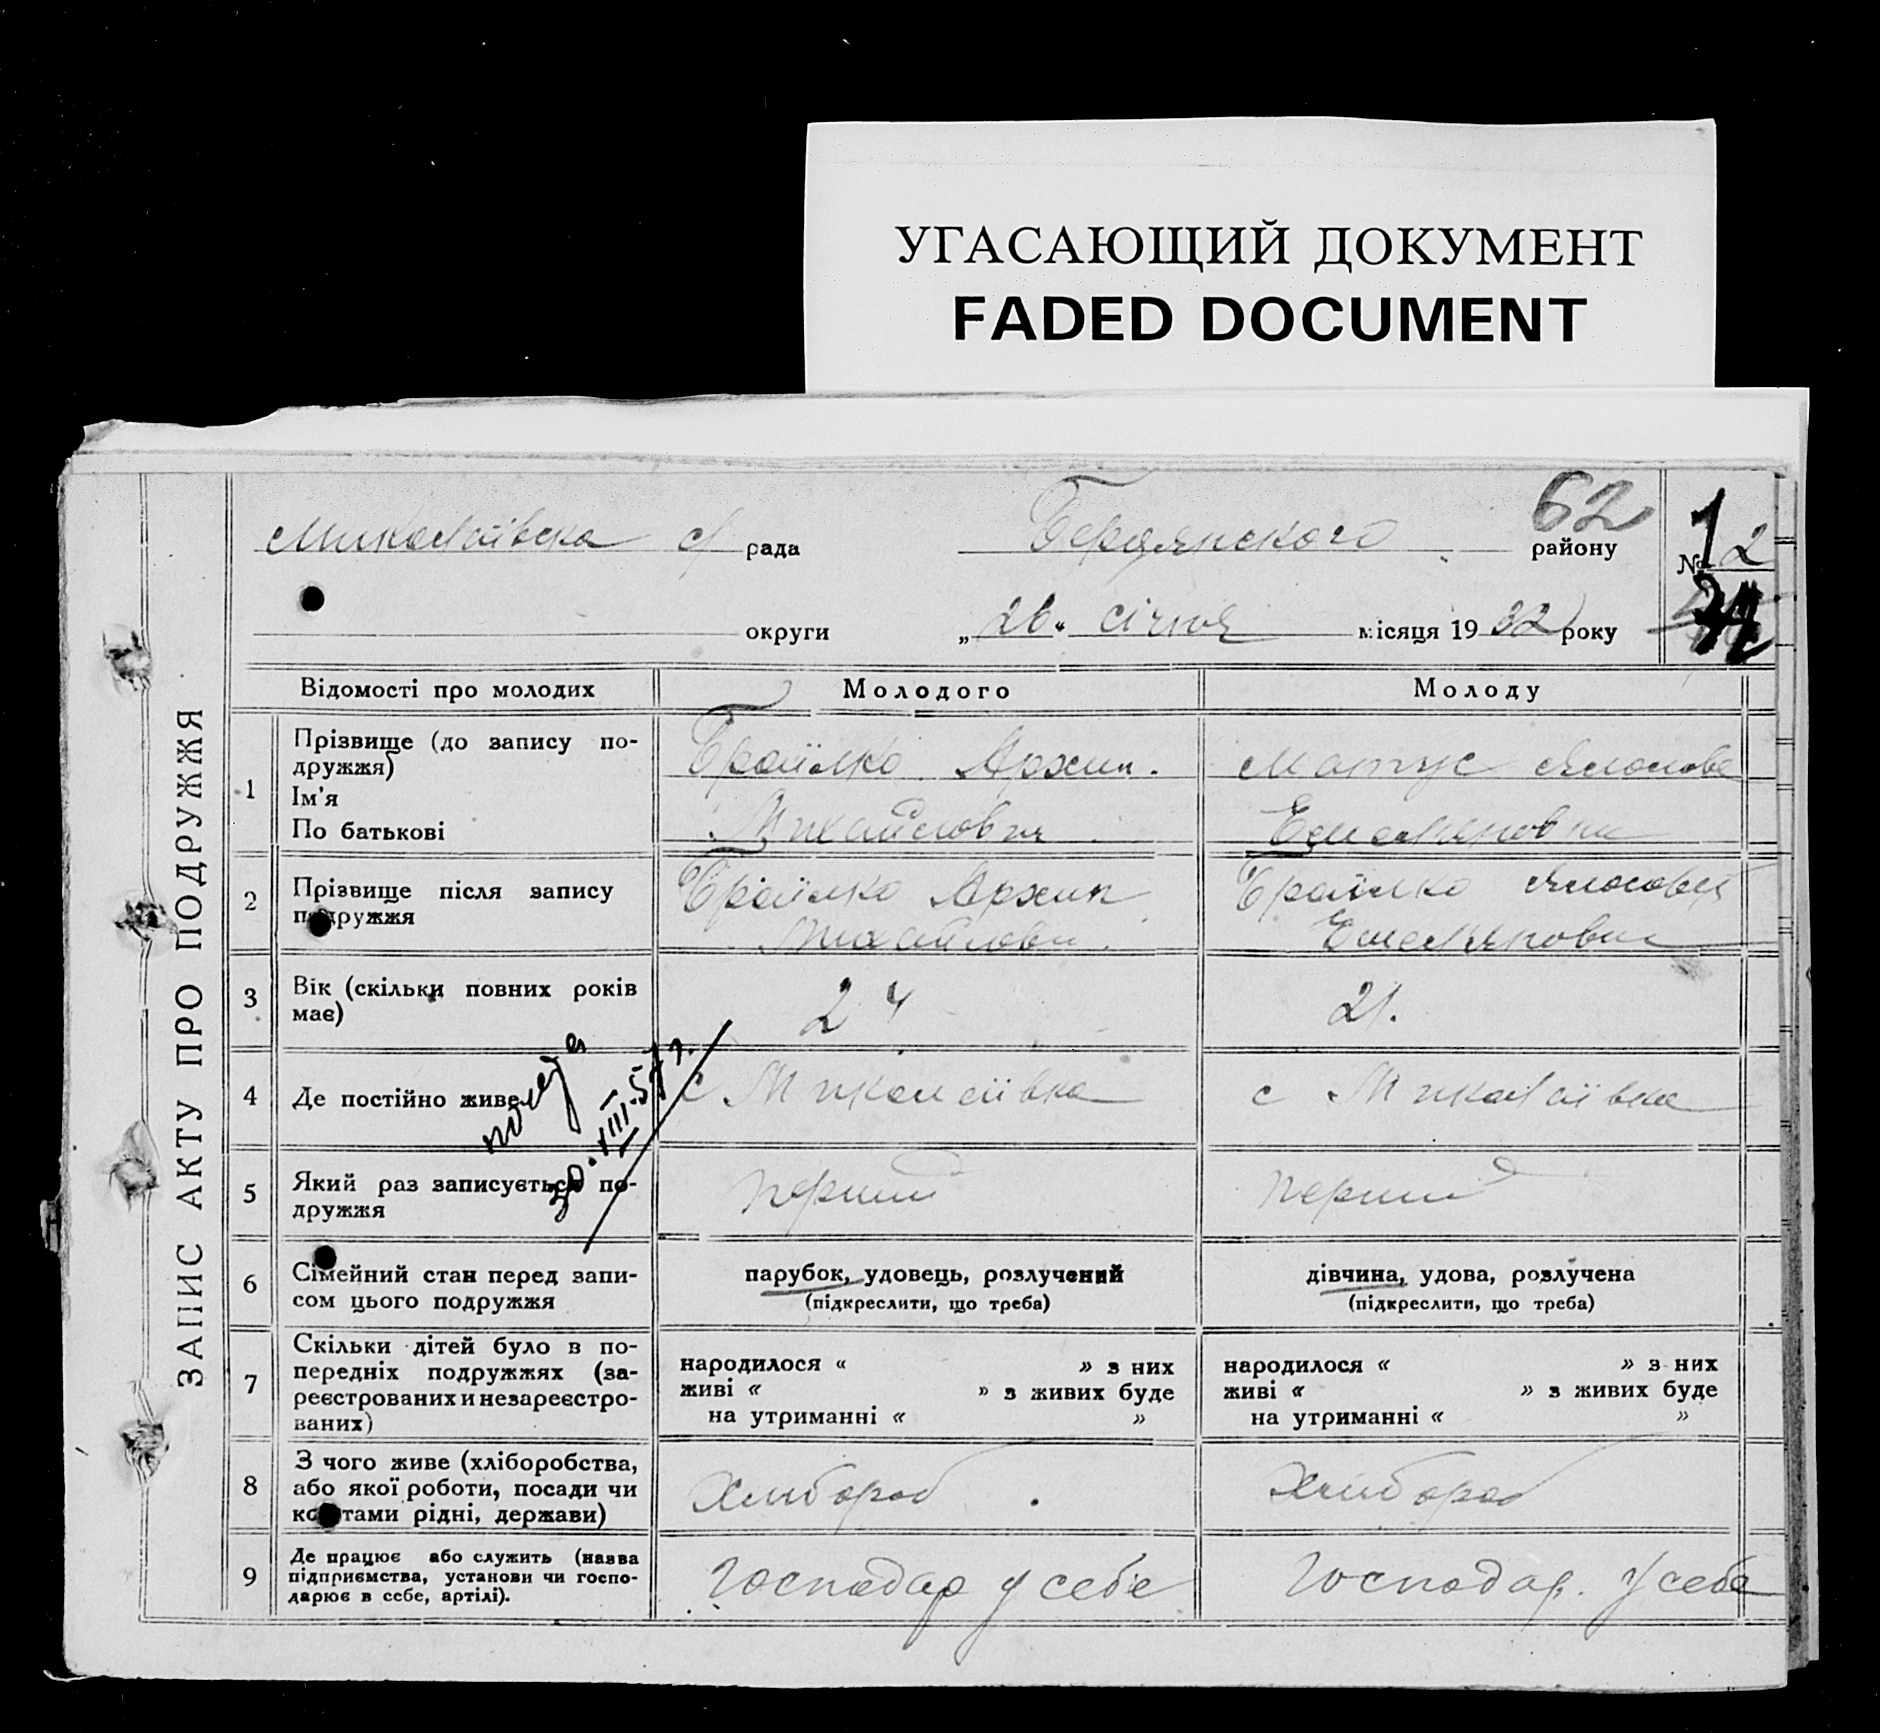 УГАСАЮЩИЙ ДОКУМЕНТ
FADED DOCUMENT
62
Миколаївска с/ рада Бердянского району
№ 12
округи „26“ січня місяця 1932 року
ЗАПИС АКТУ ПРО ПОДРУЖЖЯ
Відомості про молодих
Молодого
Молоду
1
Прізвище (до запису по-
дружжя)
Ім'я
По батькові
Браїлко Архип.
Михайлович
Матус
Емеляновна
2
Прізвище після запису
подружжя
Браїлко Архип
Михайлови
Браїлко
Емеляновна
3
Вік (скільки повних років
має)
24
21.
4
Де постійно живе
с Миколаївка
с Миколаївка
30.III.57г.
5
Який раз записується по-
дружжя
перший
перший
6
Сімейний стан перед запи-
сом цього подружжя
парубок, удовець, розлучений
(підкреслити, що треба)
дівчина, удова, розлучена
(підкреслити, що треба)
7
Скільки дітей було в по-
передніх подружжях (за-
реєстрованих и незареєстро-
ваних)
народилося « » з них
живі « » з живих буде
на утриманні « »
народилося « » з них
живі « » з живих буде
на утриманні « »
8
З чого живе (хліборобства,
або якої роботи, посади чи
коштами рідні, держави)
Хлибороб
Хлибороб
9
Де працює або служить (назва
підприємства, установи чи госпо-
дарює в себе, артілі).
Господар у себе
Господар. У себе